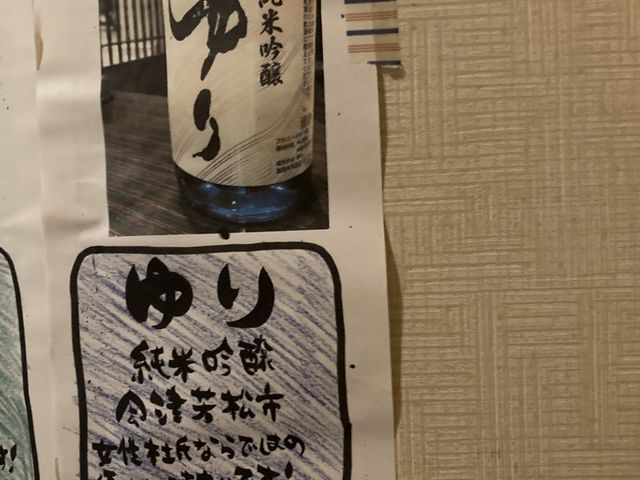 ゆり
純米吟醸
ゆり
純米吟醸
会津若松市
女性杜氏ならではの